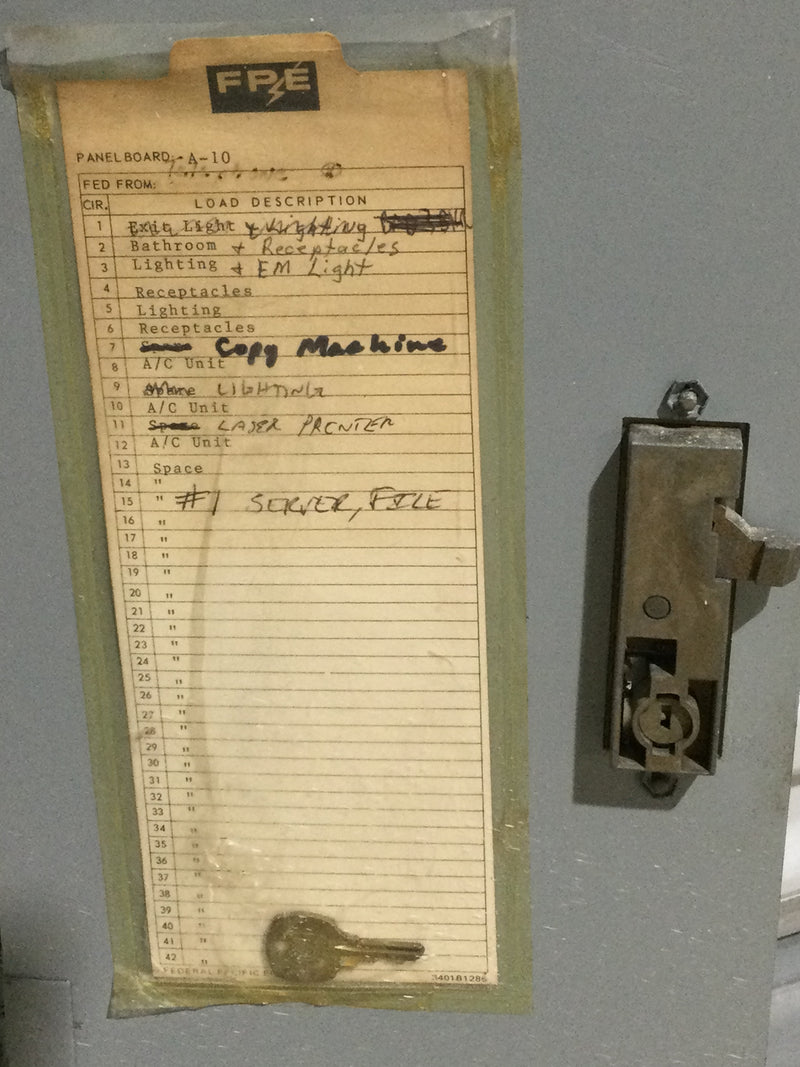 FPE
PANELBOARD: A-10
FED FROM:
CIR. LOAD DESCRIPTION
1 Exit Light & Lighting
2 Bathroom & Receptacles
3 Lighting & EM Light
4 Receptacles
5 Lighting
6 Receptacles
7 Space Copy Machine
8 A/C Unit
9 LIGHTING
10 A/C Unit
11 Space LASER PRINTER
12 A/C Unit
13 Space
14 "
15 " #1 SERVER, FILE
16 "
17 "
18 "
19 "
20 "
21 "
22 "
23 "
24 "
25 "
26 "
27 "
28 "
29 "
30 "
31 "
32 "
33 "
34 "
35 "
36 "
37 "
38 "
39 "
40 "
41 "
42 "
FEDERAL PACIFIC